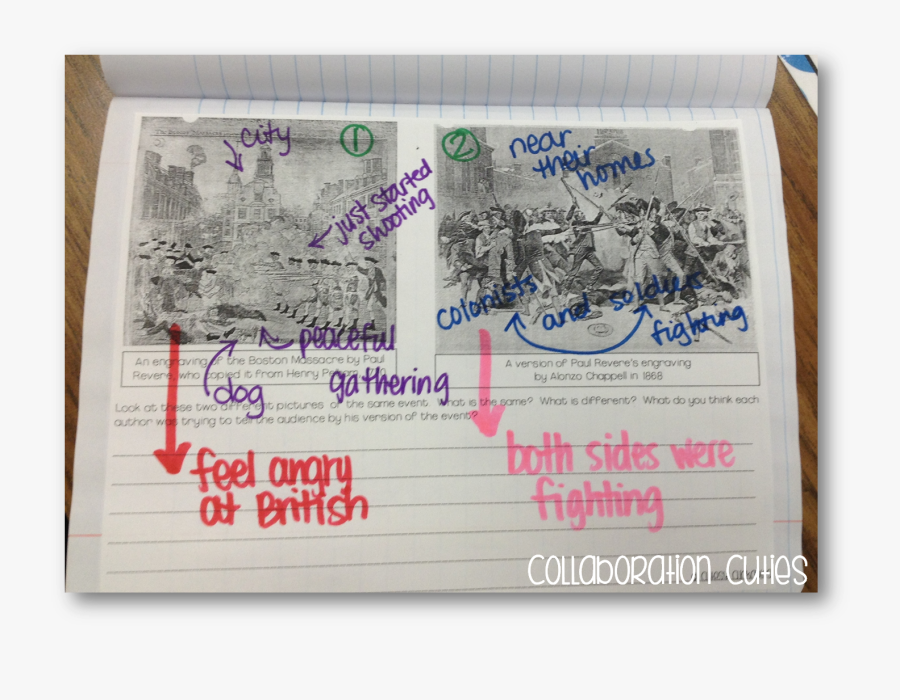 city
1
just started
shooting
peaceful
gathering
dog
An engraving of the Boston Massacre by Paul
Revere, who copied it from Henry
2
near
their
homes
colonists and soldiers
fighting
A version of Paul Revere's engraving
by Alonzo Chappell in 1868
Look at these two different pictures of the same event. What is the same? What is different? What do you think each
author was trying to tell the audience by his version of the event?
feel angry
at British
both sides were
fighting
Collaboration Cuties